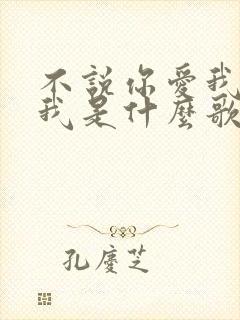 不說你愛我
我是什麼歌
孔慶芝